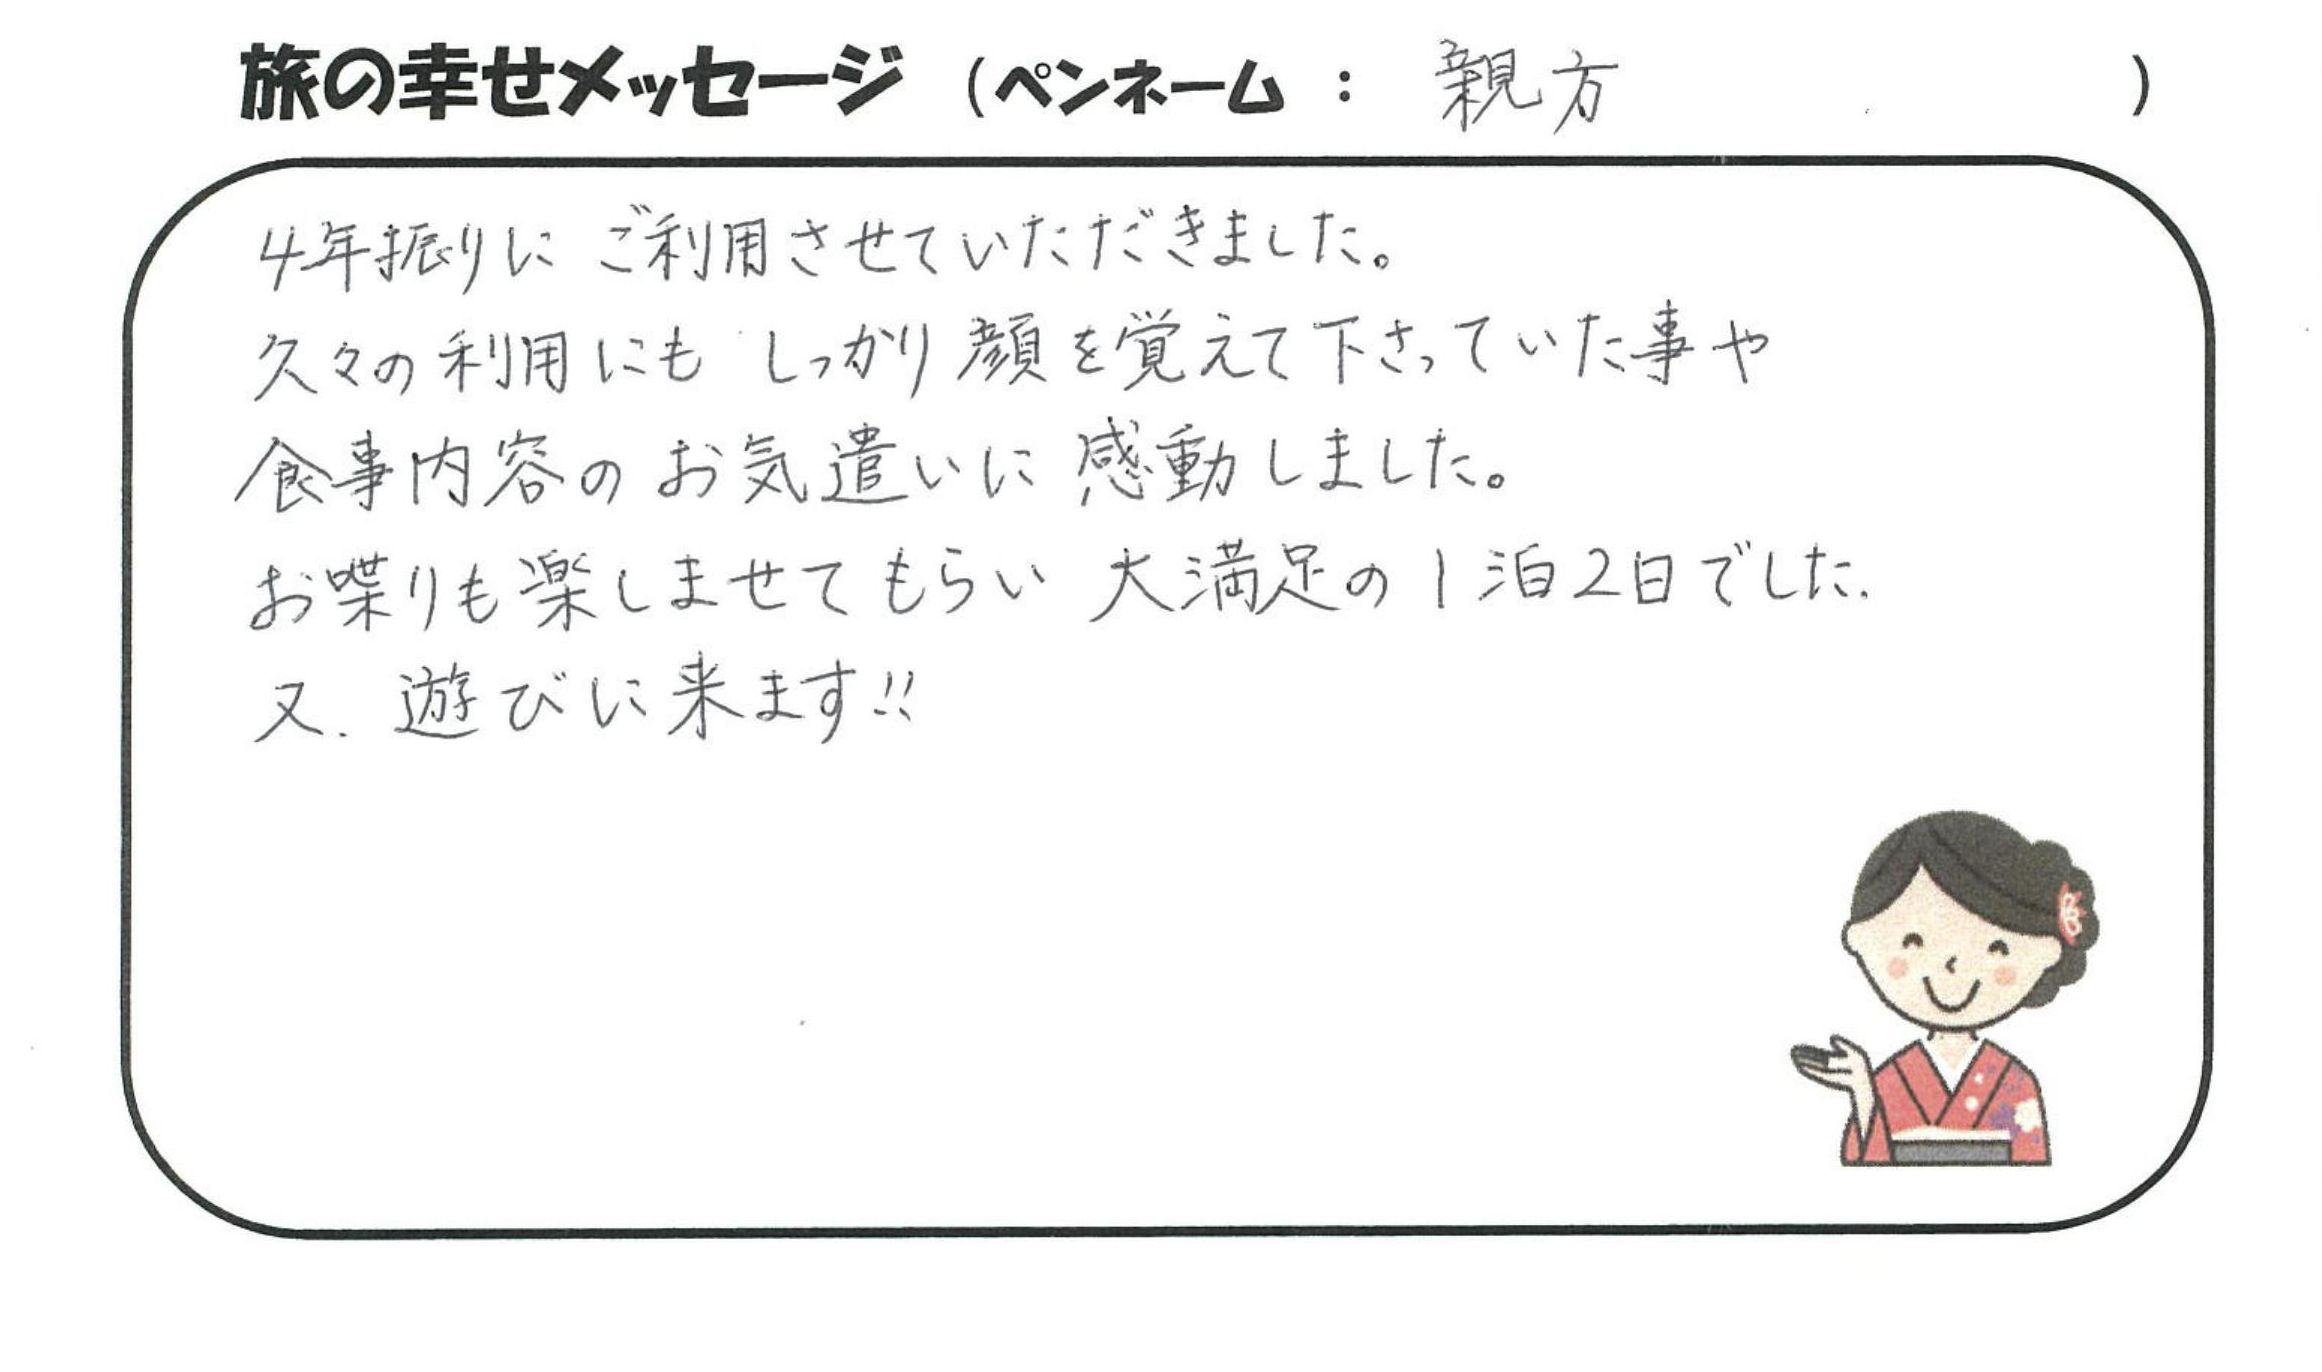 旅の幸せメッセージ (ペンネーム : 親方 )
4年振りにご利用させていただきました。
久々の利用にもしっかり顔を覚えて下さっていた事や
食事内容のお気遣いに感動しました。
お喋りも楽しませてもらい大満足の1泊2日でした.
又. 遊びに来ます!!